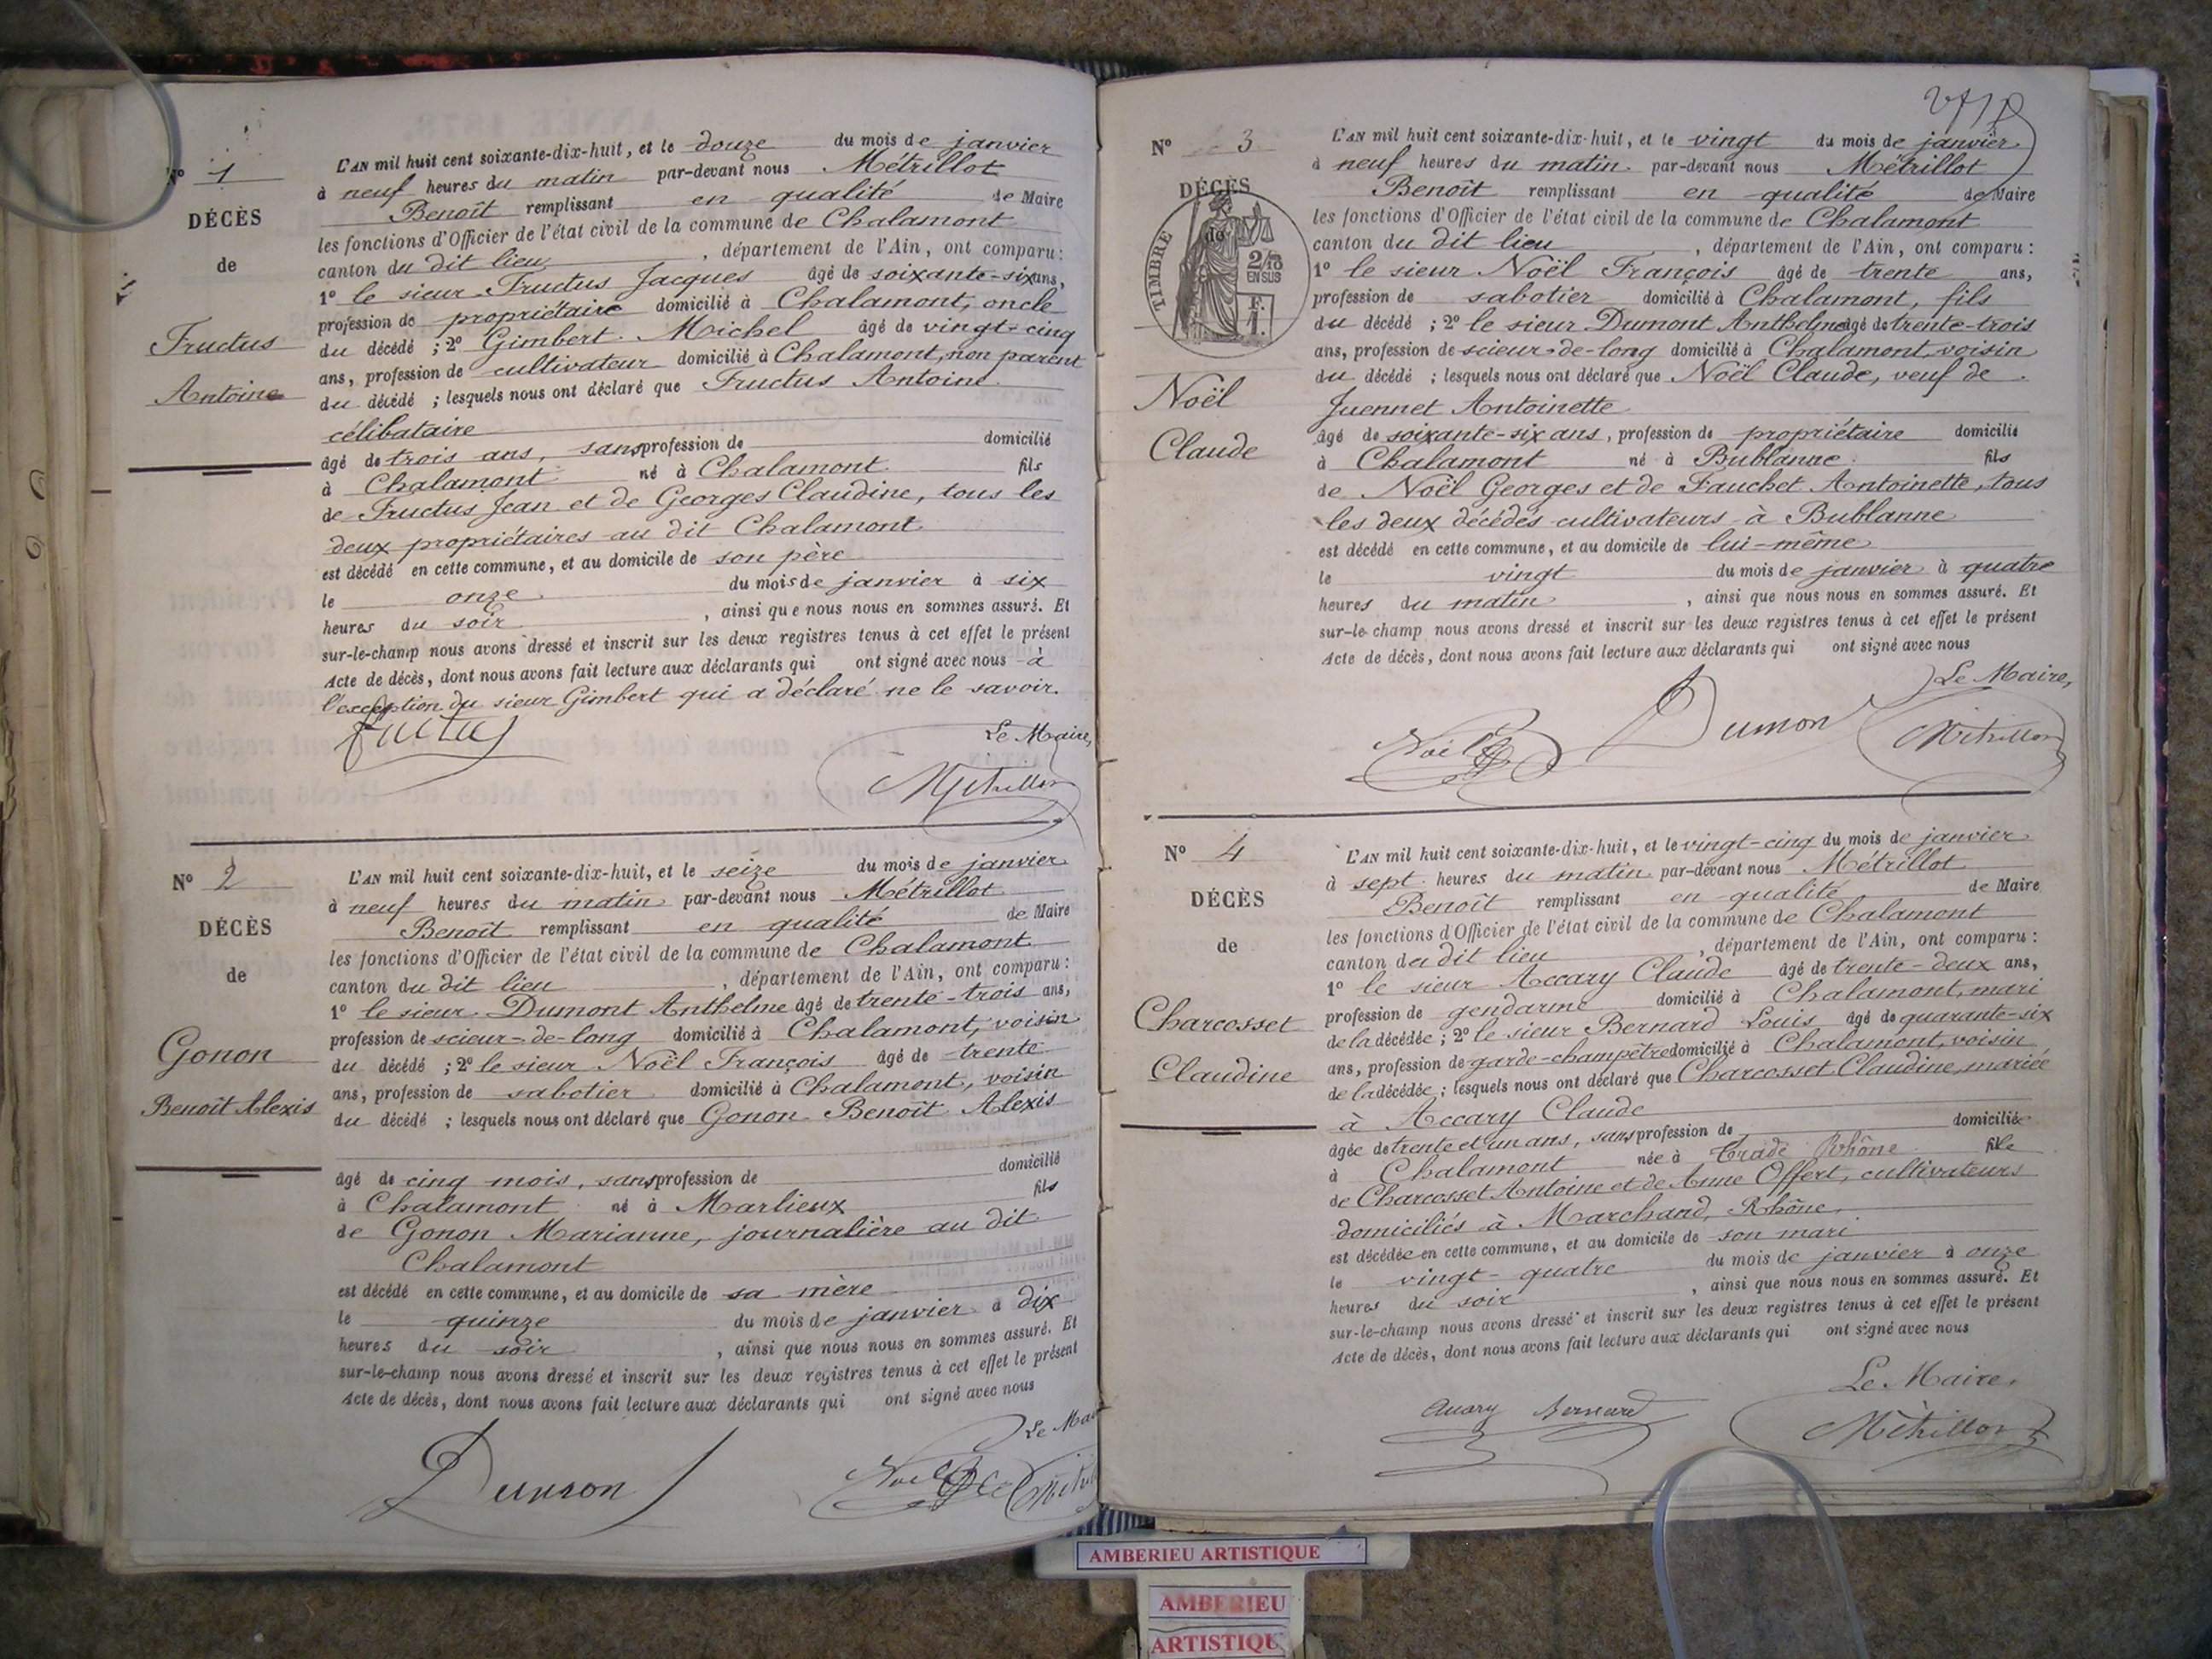 N° 1
DÉCÈS
de
Fructus
Antoine
L'AN mil huit cent soixante-dix-huit, et le douze du mois de janvier
à neuf heures du matin par-devant nous Métrillot
Benoît remplissant en qualité de Maire
les fonctions d'Officier de l'état civil de la commune de Chalamont
canton du dit lieu , département de l'Ain, ont comparu :
1° le sieur Fructus Jacques âgé de soixante-six ans,
profession de propriétaire domicilié à Chalamont, oncle
du décédé ; 2° Gimbert Michel âgé de vingt-cinq
ans, profession de cultivateur domicilié à Chalamont, non parent
du décédé ; lesquels nous ont déclaré que Fructus Antoine
célibataire
âgé de trois ans, sans profession de domicilié
à Chalamont né à Chalamont fils
de Fructus Jean et de Georges Claudine, tous les
deux propriétaires au dit Chalamont
est décédé en cette commune, et au domicile de son père
le onze du mois de janvier à six
heures du soir , ainsi que nous nous en sommes assuré. Et
sur-le-champ nous avons dressé et inscrit sur les deux registres tenus à cet effet le présent
Acte de décès, dont nous avons fait lecture aux déclarants qui ont signé avec nous à
l'exception du sieur Gimbert qui a déclaré ne le savoir.
Fructus
Le Maire,
Métrillot
N° 2
DÉCÈS
de
Gonon
Benoît Alexis
L'AN mil huit cent soixante-dix-huit, et le seize du mois de janvier
à neuf heures du matin par-devant nous Métrillot
Benoît remplissant en qualité de Maire
les fonctions d'Officier de l'état civil de la commune de Chalamont
canton du dit lieu , département de l'Ain, ont comparu :
1° le sieur Dumont Anthelme âgé de trente-trois ans,
profession de scieur-de-long domicilié à Chalamont, voisin
du décédé ; 2° le sieur Noël François âgé de trente
ans, profession de sabotier domicilié à Chalamont, voisin
du décédé ; lesquels nous ont déclaré que Gonon Benoît Alexis
âgé de cinq mois, sans profession de domicilié
à Chalamont né à Marlieux fils
de Gonon Marianne, journalière au dit
Chalamont
est décédé en cette commune, et au domicile de sa mère
le quinze du mois de janvier à dix
heures du soir , ainsi que nous nous en sommes assuré. Et
sur-le-champ nous avons dressé et inscrit sur les deux registres tenus à cet effet le présent
Acte de décès, dont nous avons fait lecture aux déclarants qui ont signé avec nous
Le Mai
Dumon Noël
N° 3
DÉCÈS
de
TIMBRE
2/10
EN SUS
Noël
Claude
L'AN mil huit cent soixante-dix-huit, et le vingt du mois de janvier
à neuf heures du matin par-devant nous Métrillot
Benoît remplissant en qualité de Maire
les fonctions d'Officier de l'état civil de la commune de Chalamont
canton du dit lieu , département de l'Ain, ont comparu :
1° le sieur Noël François âgé de trente ans,
profession de sabotier domicilié à Chalamont, fils
du décédé ; 2° le sieur Dumont Anthelme âgé de trente-trois
ans, profession de scieur-de-long domicilié à Chalamont, voisin
du décédé ; lesquels nous ont déclaré que Noël Claude, veuf de
Juennet Antoinette
âgé de soixante-six ans, profession de propriétaire domicilié
à Chalamont né à Bublanne fils
de Noël Georges et de Fauchet Antoinette, tous
les deux décédés cultivateurs à Bublanne
est décédé en cette commune, et au domicile de lui-même
le vingt du mois de janvier à quatre
heures du matin , ainsi que nous nous en sommes assuré. Et
sur-le-champ nous avons dressé et inscrit sur les deux registres tenus à cet effet le présent
Acte de décès, dont nous avons fait lecture aux déclarants qui ont signé avec nous
Le Maire,
Noël Dumon Métrillot
N° 4
DÉCÈS
de
Charcosset
Claudine
L'AN mil huit cent soixante-dix-huit, et le vingt-cinq du mois de janvier
à sept heures du matin par-devant nous Métrillot
Benoît remplissant en qualité de Maire
les fonctions d'Officier de l'état civil de la commune de Chalamont
canton du dit lieu , département de l'Ain, ont comparu :
1° le sieur Accary Claude âgé de trente-deux ans,
profession de gendarme domicilié à Chalamont, mari
de la décédée ; 2° le sieur Bernard Louis âgé de quarante-six
ans, profession de garde-champêtre domicilié à Chalamont, voisin
de la décédée ; lesquels nous ont déclaré que Charcosset Claudine, mariée
à Accary Claude
âgée de trente et un ans, sans profession de domiciliée
à Chalamont née à Trade Rhône fille
de Charcosset Antoine et de Anne Offert, cultivateurs
domiciliés à Marchand, Rhône,
est décédée en cette commune, et au domicile de son mari
le vingt-quatre du mois de janvier à onze
heures du soir , ainsi que nous nous en sommes assuré. Et
sur-le-champ nous avons dressé et inscrit sur les deux registres tenus à cet effet le présent
Acte de décès, dont nous avons fait lecture aux déclarants qui ont signé avec nous
Le Maire,
Accary Bernard Métrillot
AMBERIEU ARTISTIQUE
AMBERIEU
ARTISTIQUE